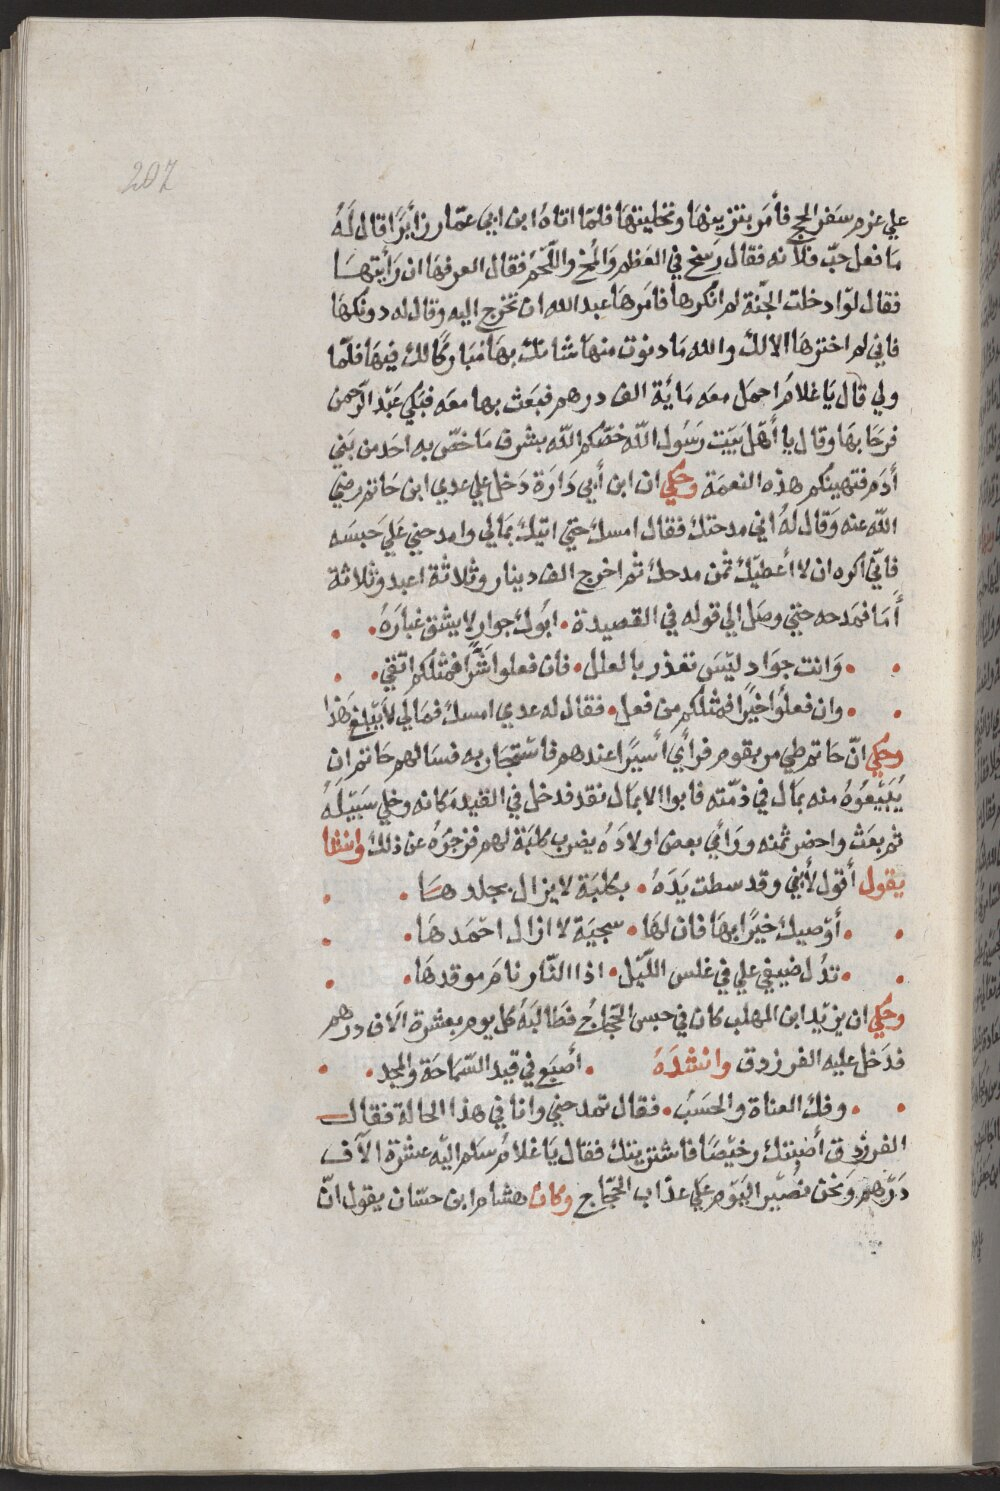 207
علي عزم سَفر الحج فأمَر بتزيينهَا وتحليتهَا فلمّا اتاهُ ابن ابي عمّار زأَيرًا قال لَهُ
مَا فعل حبّ فلاَنه فقال رَسخ في العَظم وَالمخ واللّحَم فقال العرفهَا ان رَأيتهسَا
فقال لوَ ادخلت الجنّة لم انكرها فامَرهَا عبد الله ان تخرج اليه وقال له دونكهَا
فاني لم اختزهَا الا لك والله مَا دنوت منهَا شانك بهَا مُبَاركًا لك فيهَا فلمّا
ولي قال يَا غلامُ احمَل معَه مَايَة الف درهم فبَعث بها معَه فبَكي عَبْد الرّحمن
فرحَا بهَا وقال يا أهَل بَيَت رَسُول اللّه خصّكم اللّه بشرف مَا خصّ به احَد من بَني
أدَم فتهينكم هذه النعمَة وحكي ان ابن أبي دَارَة دَخل علي عدي ابن حَاتم رضي
اللّه عنه وَقال لهُ اني مدحتك فقال امسك حتي اتيك بمَالي وامدحني عَلي حَبسَه
فانّي اكره ان لا أعطيّك ثمن مدحك ثم اخرج الف دينار وثلاثة اعبد وثلاثة
أمَا فمَدحه حتي وصَل الي قوله في القصيدة • ابُوك جوار لا يشق غبَارَهُ •
• وَانت جوَاد ليَسَ تعذر بالعلل • فان فعلوا شَرًّا فمثلكم اتقي •
• وان فعلُوا خيرًا فمثلكم من فعل • فقال له عدي امسك فمَالي لا يَبلغ هَذا
وحكي انّ حَاتم طي مر بقوم فرأي أسيَرًا عندهم فاستجَار به فسَالهم حَاتم ان
يُبَيْعُوهُ منه بمَال في ذمّته فابوا الا بمَال نقد فدخل في القيد مَكانه وخلي سَبيَلَهُ
ثم بعَث واحضر ثمنه ورَأي بعض اولادَهُ يضرب كلبَة لهم فزجرَهُ عن ذلك وانشا
يقول أقول لأبني وقد سطت يَدَهُ • بكلبَة لا يزال يجلدهسَا •
• أوَصيك خيَرًا بهَا فان لهَا • سجيَة لا ازال احَمَدهَا •
• تدُل ضيفي علي في غلس اللّيَل • اذا النّار نامَ موقدهَا •
وحكي ان يزيَد ابن المهلب كان في حبس الحجّاجُ فطَالبَهُ كل يوم بعشرة الَاف درهم
فدَخل عليه الفرزدق وانشدَهُ • أصَبَع في قيد السّمَاحَة والمجد •
• وفك العناة والحسَبُ • فقال تمدحني وانا في هذا الحالة فقال
الفرزدق أصَبتك رخيَصًا فاشتريتك فقال يَا غلامُ سَلم اليَه عشرة الآف
دَرهم ونحن نصَبر اليَوَم عَلي عذاب الحجّاج وكان هشام ابن حسّان يقول انّ